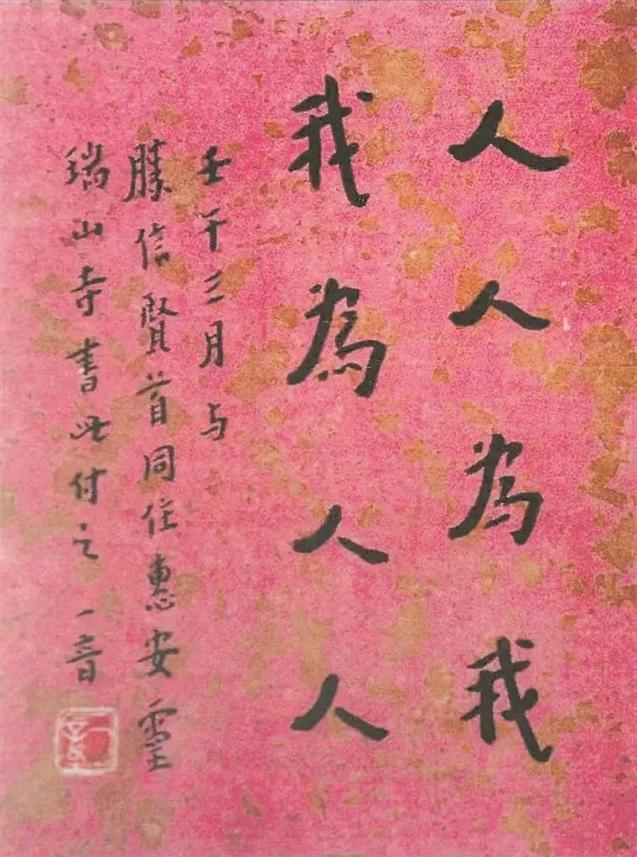 人人為我
我為人人
壬午三月与
勝信賢首同住惠安靈
瑞山寺書此付之 一音